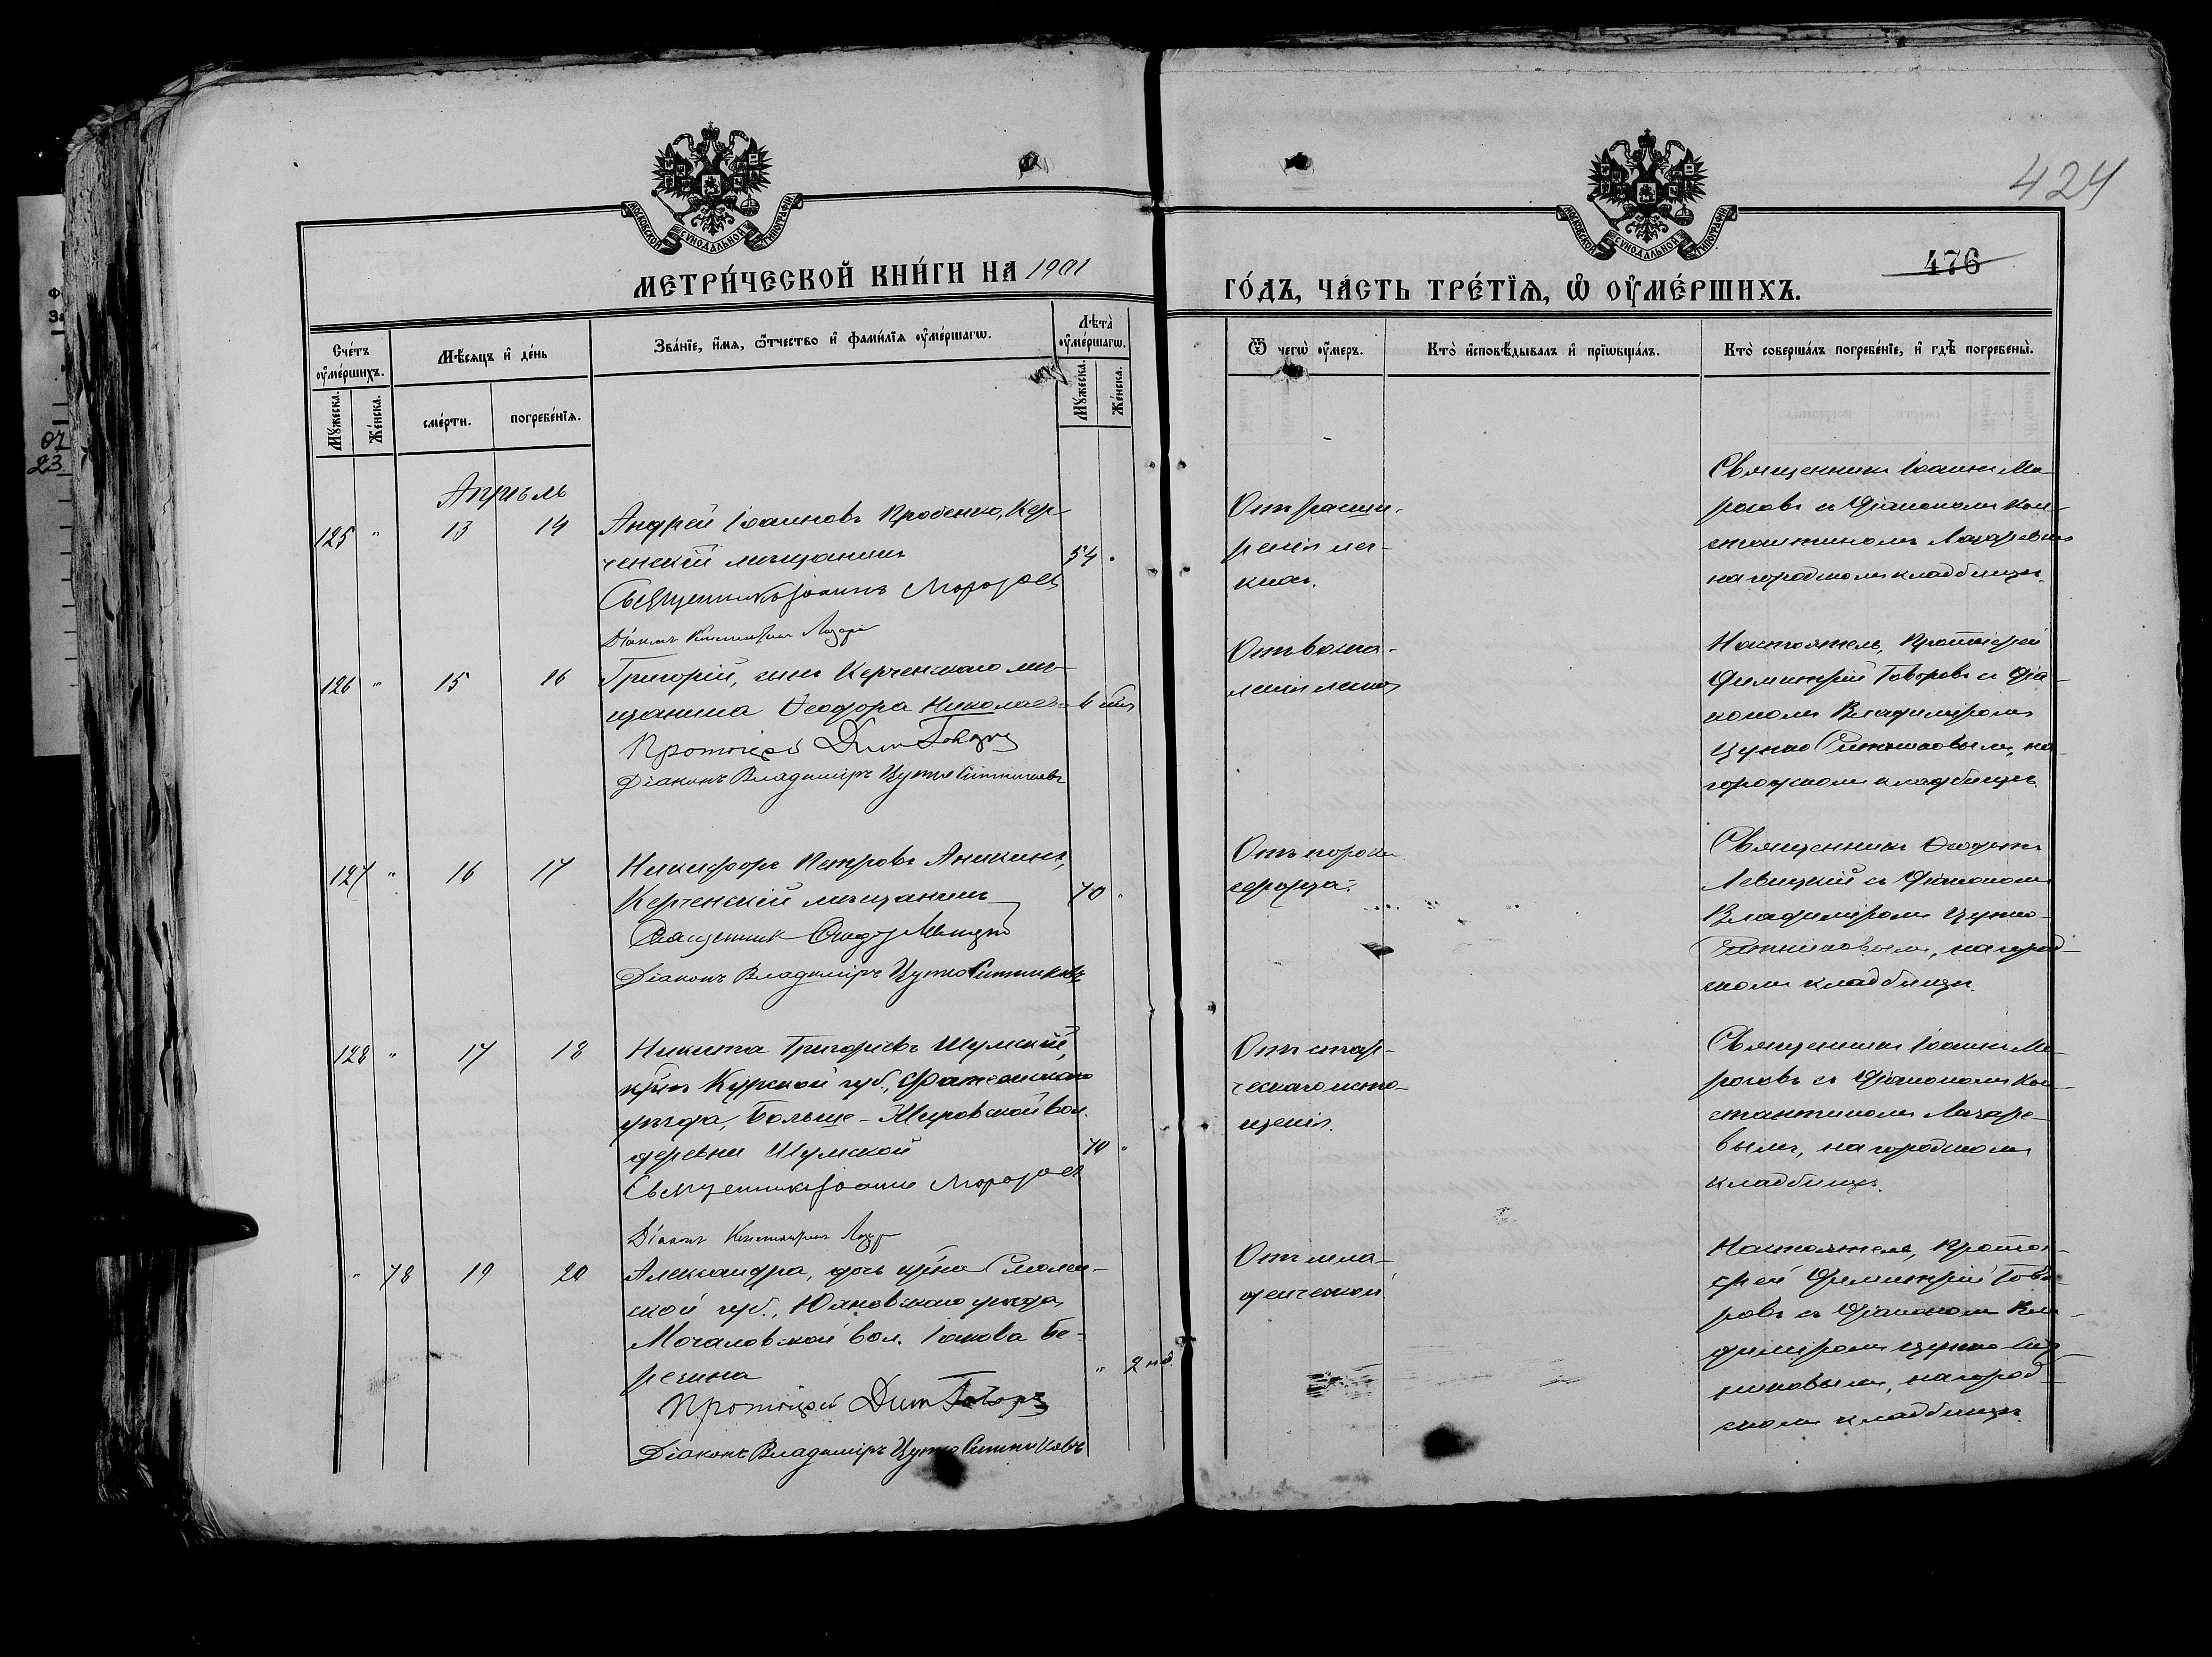 424
476
МОСКОВСКОЙ СѴНОДАЛЬНОЙ ТИПОГРАФІИ
МОСКОВСКОЙ СѴНОДАЛЬНОЙ ТИПОГРАФІИ
МЕТРИ́ЧЕСКОЙ КНИ́ГИ НА 1901
ГО́ДЪ, ЧА́СТЬ ТРЕ́ТІѦ, Ѡ ОУ҆МЕ́РШИХЪ.
Сче́тъ оу҆ме́ршихъ.
Мѣ́сяцъ и҆ де́нь
Зва́нїе, и҆́мя, ѻ҆́тчество и҆ фами́лїя оу҆ме́ршагѡ.
Лѣта̀ оу҆ме́ршагѡ.
Мꙋ́жеска.
Же́нска.
сме́рти.
погребе́нїя.
Мꙋ́жеска.
Же́нска.
Ѿ чегѡ̀ оу҆́меръ.
Кто̀ и҆сповѣ́дывалъ и҆ прїѡбща́лъ.
Кто̀ соверша́лъ погребе́нїе, и҆ гдѣ̀ погребены̀.
Апрѣль
125 " 13 14 Андрей Іоанновъ Проценко, Кер-
ченскій мѣщанинъ 54 "
Священникъ Іоаннъ Морозовъ
Діаконъ Константинъ Лазаре
От расши-
ренія лег-
кихъ.
Священникъ Іоаннъ Мо-
розовъ съ Діакономъ Кон-
стантиномъ Лазаревымъ
на городскомъ кладбищѣ.
126 " 15 16 Григорій, сынъ Керченскаго мѣ-
щанина Ѳеодора Николаева
Протоіерей Дим Говоровъ
Діаконъ Владиміръ Цутко Ситниковъ
От воспа-
ленія легкихъ
Настоятель, Протоіерей
Димитрій Говоровъ съ Діа-
кономъ Владиміромъ
Цутко Ситниковымъ, на
городскомъ кладбищѣ.
127 " 16 17 Никифоръ Петровъ Аникинъ,
Керченскій мѣщанинъ 70 "
Священник Ѳеодот Левицкій
Діаконъ Владиміръ Цутко Ситниковъ
Отъ порока
сердца.
Священникъ Ѳеодотъ
Левицкій съ Діакономъ
Владиміромъ Цутко-
Ситниковымъ, на город-
скомъ кладбищѣ.
128 " 17 18 Никита Григорьевъ Шумскій,
кр-нъ Курской губ., Фатежскаго
уѣзда, Больше-Жировской вол.
деревни Шумской 70 "
Священникъ Іоаннъ Морозовъ
Діаконъ Константинъ Лазар
Отъ стар-
ческаго исто-
щенія.
Священникъ Іоаннъ Мо-
розовъ съ Діакономъ Кон-
стантиномъ Лазаре-
вымъ, на городскомъ
кладбищѣ.
" 78 19 20 Александра, дочь кр-на Смолен-
ской губ., Юхновскаго уѣзда,
Мочаловской вол. Іакова Бе-
резина " 2 нед.
Протоіерей Дим Говоровъ
Діаконъ Владиміръ Цутко Ситниковъ
От мла-
денческой
Настоятель, Протоі-
ерей Димитрій Гово-
ровъ съ Діакономъ Вла-
диміромъ Цутко-Сит-
никовымъ, на город-
скомъ кладбищѣ.